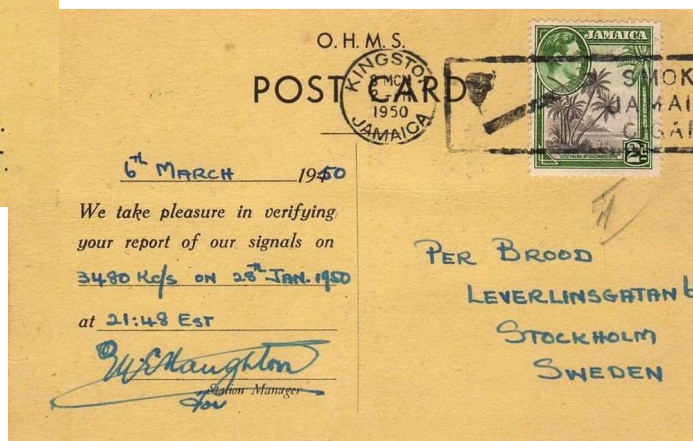 O.H.M.S.
POST CARD
KINGSTON
8 MCH
1950
JAMAICA
JAMAICA
SMOK
JAMAI
CIGAR
2D
6th MARCH 1950
We take pleasure in verifying
your report of our signals on
3480 Kc/s ON 28th JAN. 1950
at 21:48 EST
Station Manager
For
PER BROOD
LEVERLINSGATAN
STOCKHOLM
SWEDEN